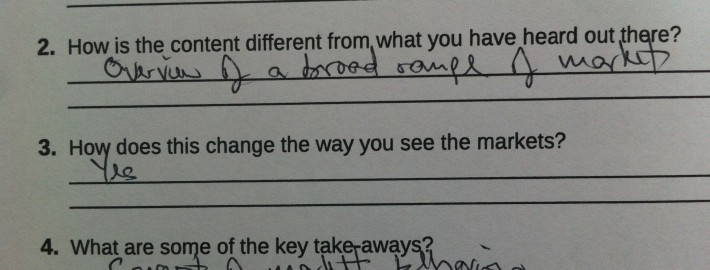 2. How is the content different from what you have heard out there?
Overview of a broad range of markets
3. How does this change the way you see the markets?
Yes
4. What are some of the key take-aways?